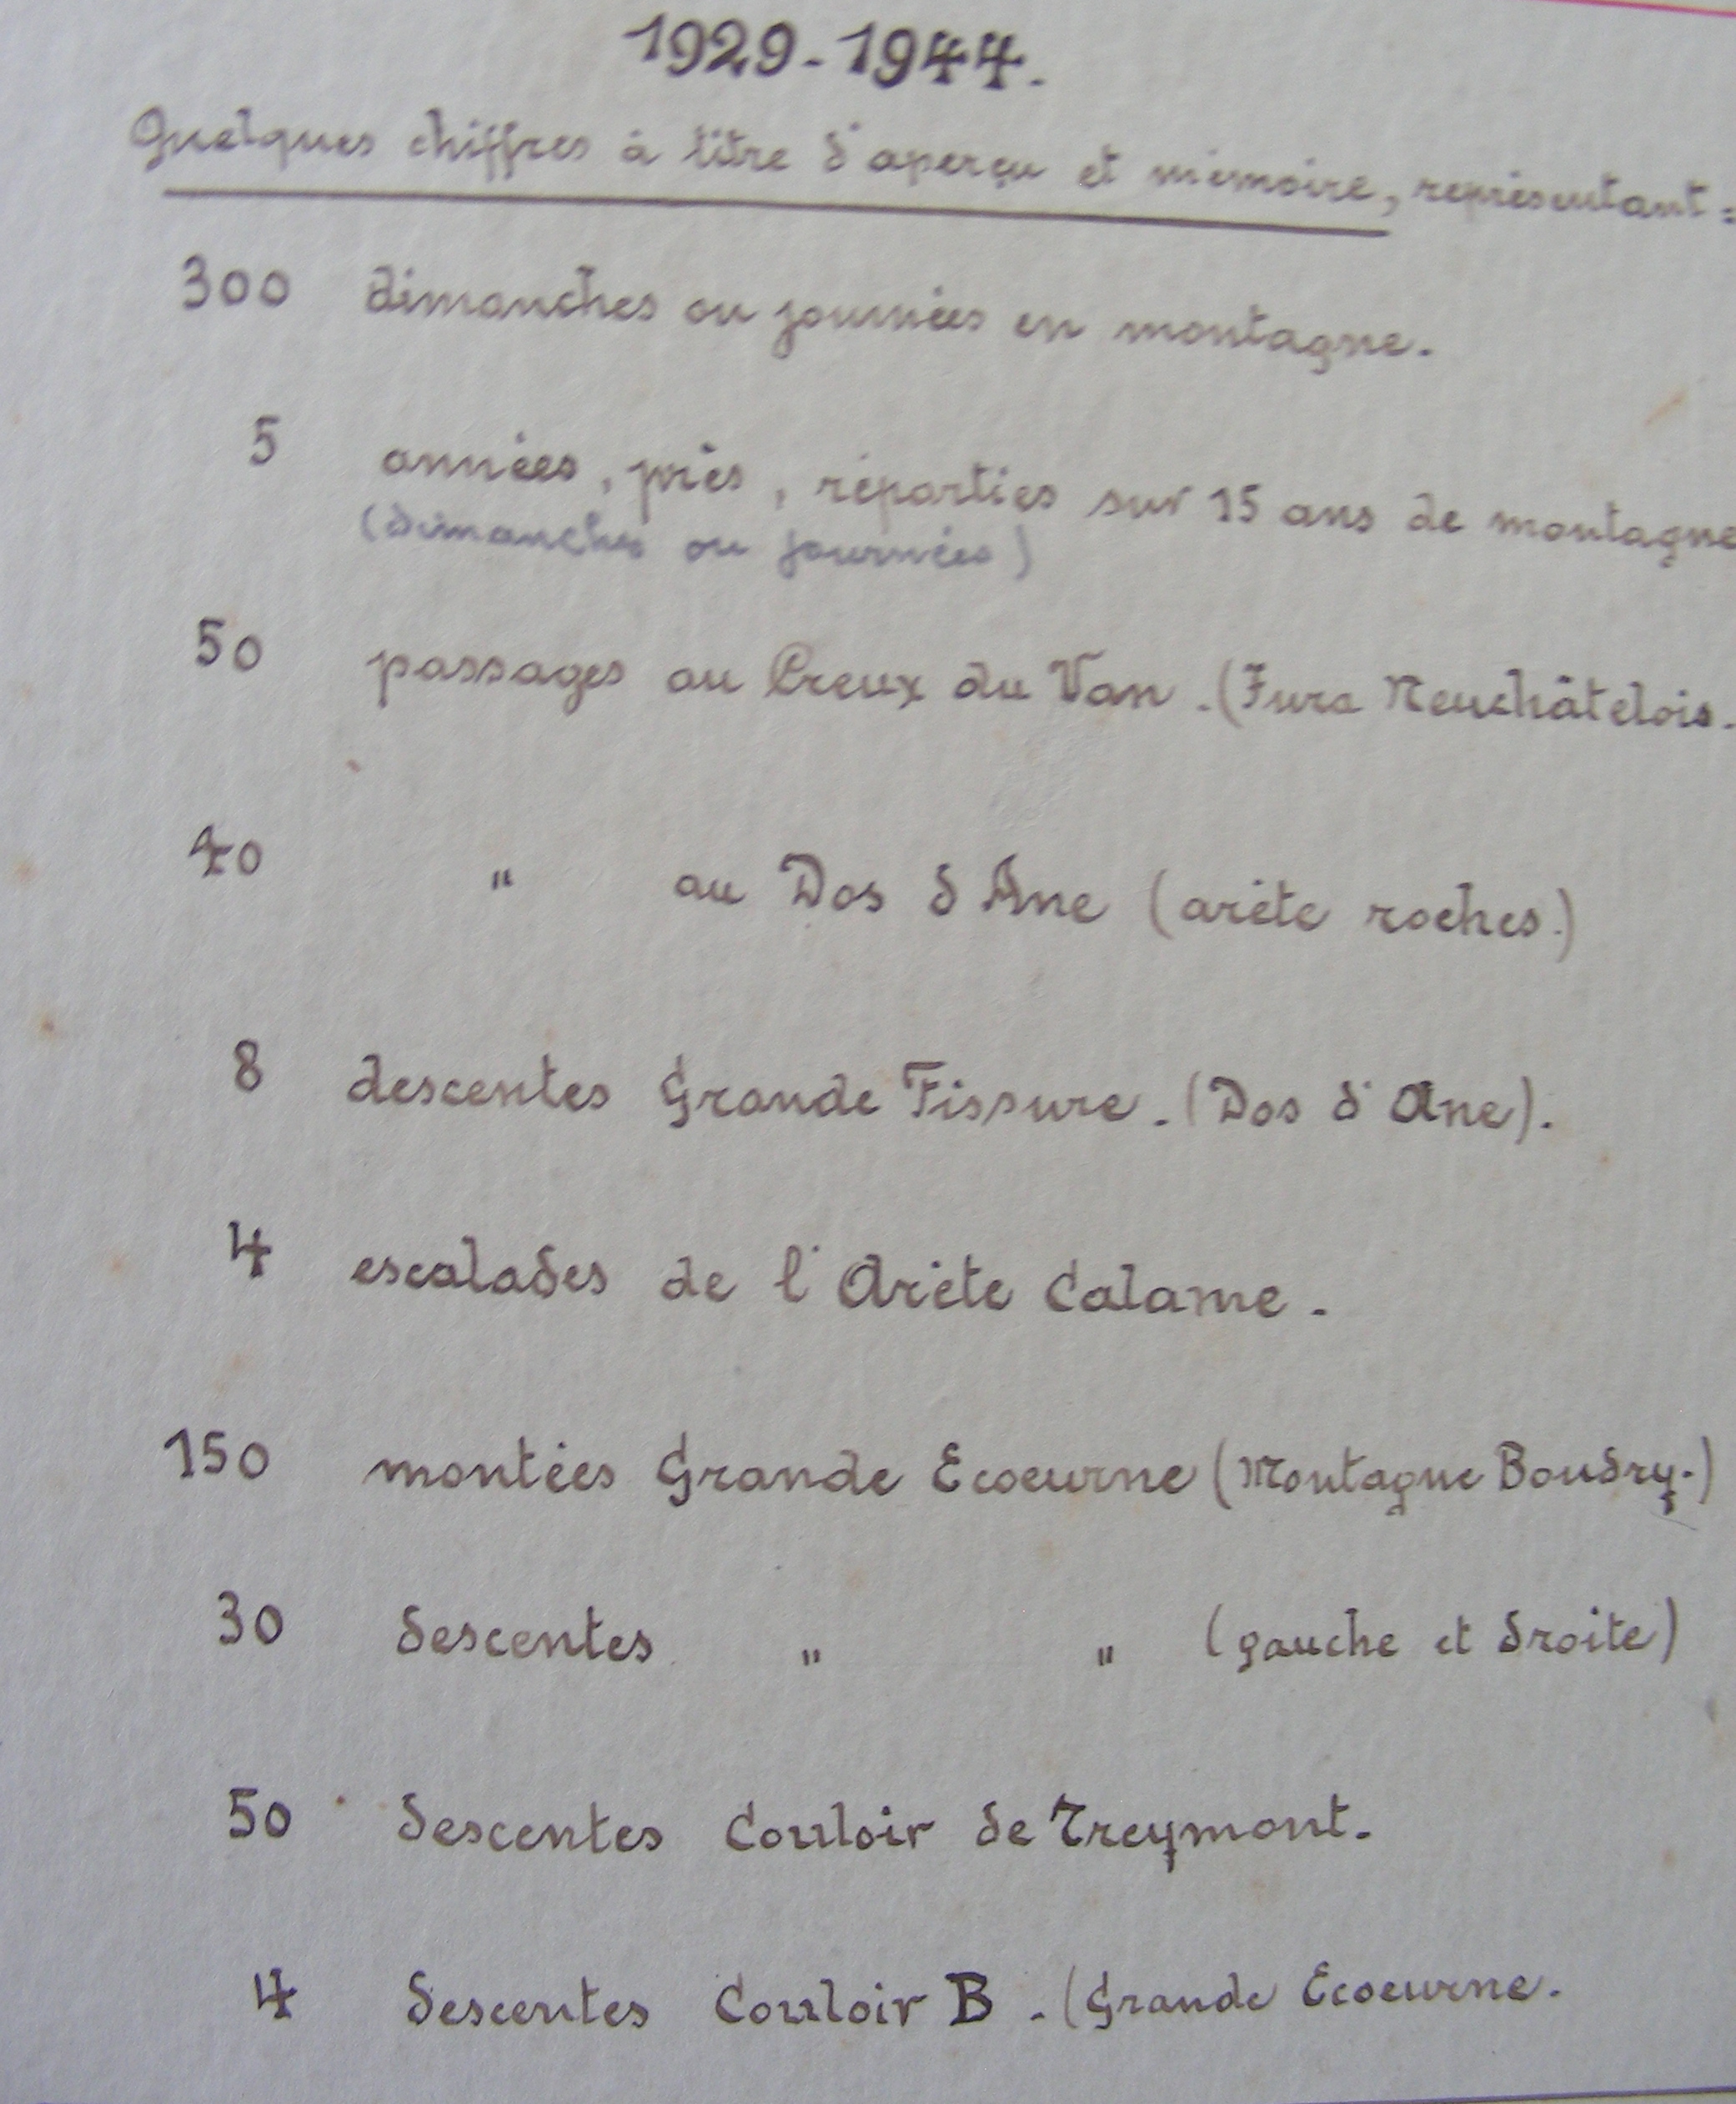 1929-1944.
Quelques chiffres à titre d'aperçu et mémoire, représentant:
300 dimanches ou journées en montagne.
5 années, près, réparties sur 15 ans de montagne
(dimanches ou journées)
50 passages au Creux du Van. (Jura Neuchâtelois.
40 " au Dos d'Ane (arête roches.)
8 descentes Grande Fissure. (Dos d'Ane).
4 escalades de l'Arête Calame.
150 montées Grande Ecoeurne (Montagne Boudry.)
30 descentes " " (gauche et droite)
50 descentes Couloir de Treymont.
4 descentes Couloir B. (Grande Ecoeurne.